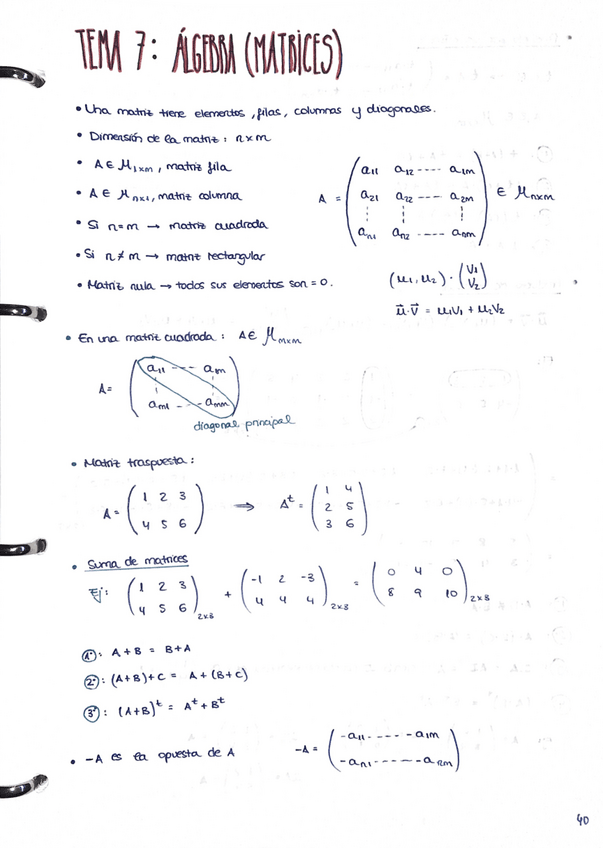 TEMA 7: ÁLGEBRA (MATRICES)
• Una matriz tiene elementos, filas, columnas y diagonales.
• Dimensión de la matriz: n x m
• A ∈ M₁ₓₘ, matriz fila
• A ∈ Mₙₓ₁, matriz columna
• Si n = m → matriz cuadrada
• Si n ≠ m → matriz rectangular
• Matriz nula → todos sus elementos son = 0.
A = ( a₁₁ a₁₂ ---- a₁ₘ
a₂₁ a₂₂ --- a₂ₘ
aₙ₁ aₙ₂ ---- aₙₘ ) ∈ Mₙₓₘ
(u₁, u₂) · ( v₁
v₂ )
u⃗ · v⃗ = u₁v₁ + u₂v₂
• En una matriz cuadrada: A ∈ Mₘₓₘ
A = ( a₁₁ --- a₁ₘ
aₘ₁ --- aₘₘ )
diagonal principal
• Matriz traspuesta:
A = ( 1 2 3
4 5 6 ) ⟹ Aᵗ = ( 1 4
2 5
3 6 )
• Suma de matrices
Ej: ( 1 2 3
4 5 6 )₂ₓ₃ + ( -1 2 -3
4 4 4 )₂ₓ₃ = ( 0 4 0
8 9 10 )₂ₓ₃
1º: A + B = B + A
2º: (A+B)+C = A+(B+C)
3º: (A+B)ᵗ = Aᵗ + Bᵗ
• -A es la opuesta de A
-A = ( -a₁₁ ---- -a₁ₘ
-aₙ₁ ---- -aₙₘ )
40